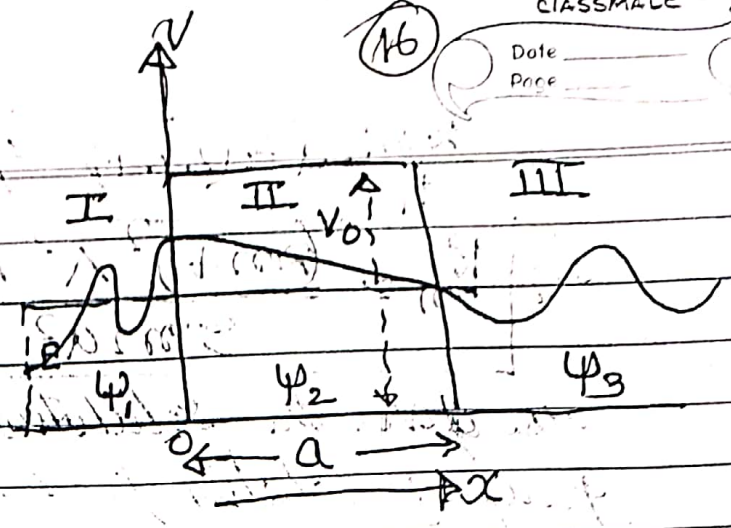 CLASSMATE
16
Date
Page
V
I II III
V₀
E
ψ₁ ψ₂ ψ₃
0
a
x